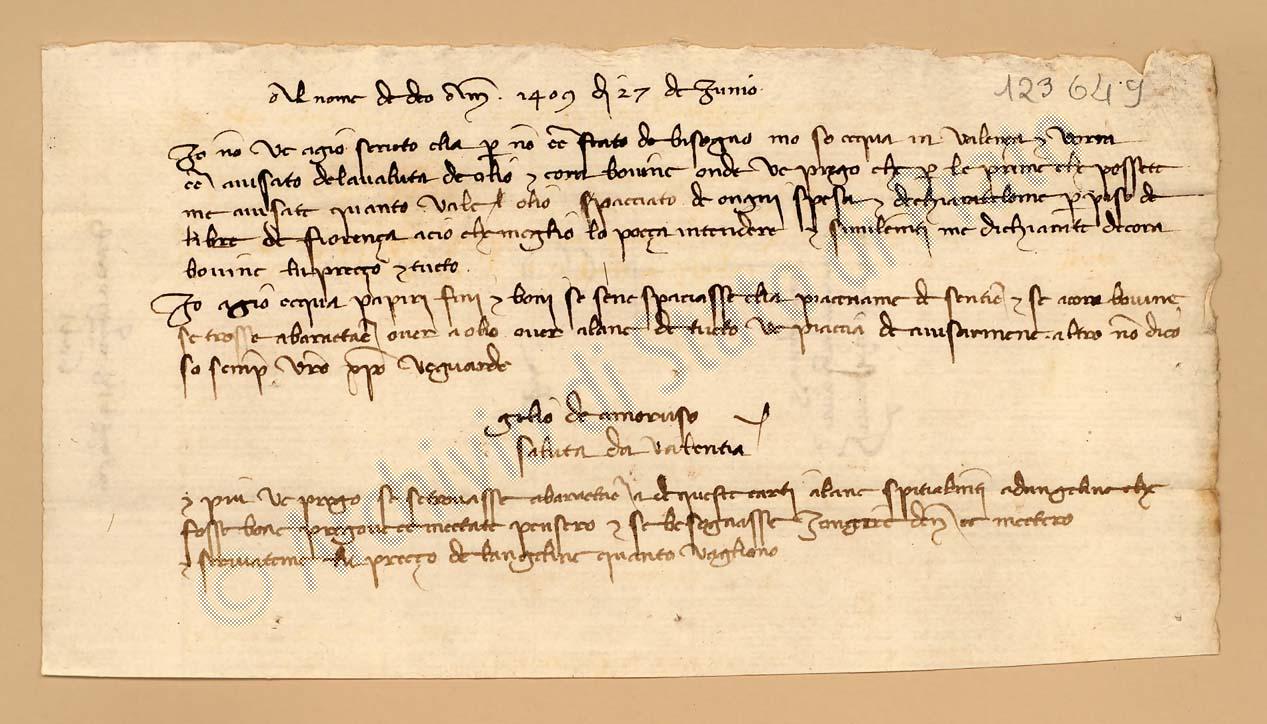 Al nome de deo Am̅. 1409 dj 27 de Junio
123649
Io no̅ ve agio scricto cha p̱ no̅ e̅e̅ stato de bisogno mo so ecqua in valença & vorria
e̅e̅ avisato dela valuta de olio & cora bovine onde ve prego che p̱ le prime che possete
me avisate quanto vale l olio spacciato de ongni spesa & dechiaratelome p̱ peso de
libre de fiorença acio che meglio lo poçça intendere & similem̅ti me dichiarite de cora
bovine lu preçço & tucto.
Io agio ecqua papiri fini & boni se sene spaciasse cha piacename de sentire & se a cora bovine
se trosse a baractare over a olio over a lane de tucto ve piaccia de avisarmene. altro no̅ dico
so semp̱ vr̅o xp̅o ve guarde
gilio de amoruso
saluta da valentia
& piu ve prego se se trovasse a baractare a de queste carti a lane spitialm̅ti ad angeline che
fosse bone pregove ce mectate pensero & se besognasse jongere den̅ ce mectero
& scrivateme lu preçço de l angeline quanto vagliono
© Archivio di Stato di Prato